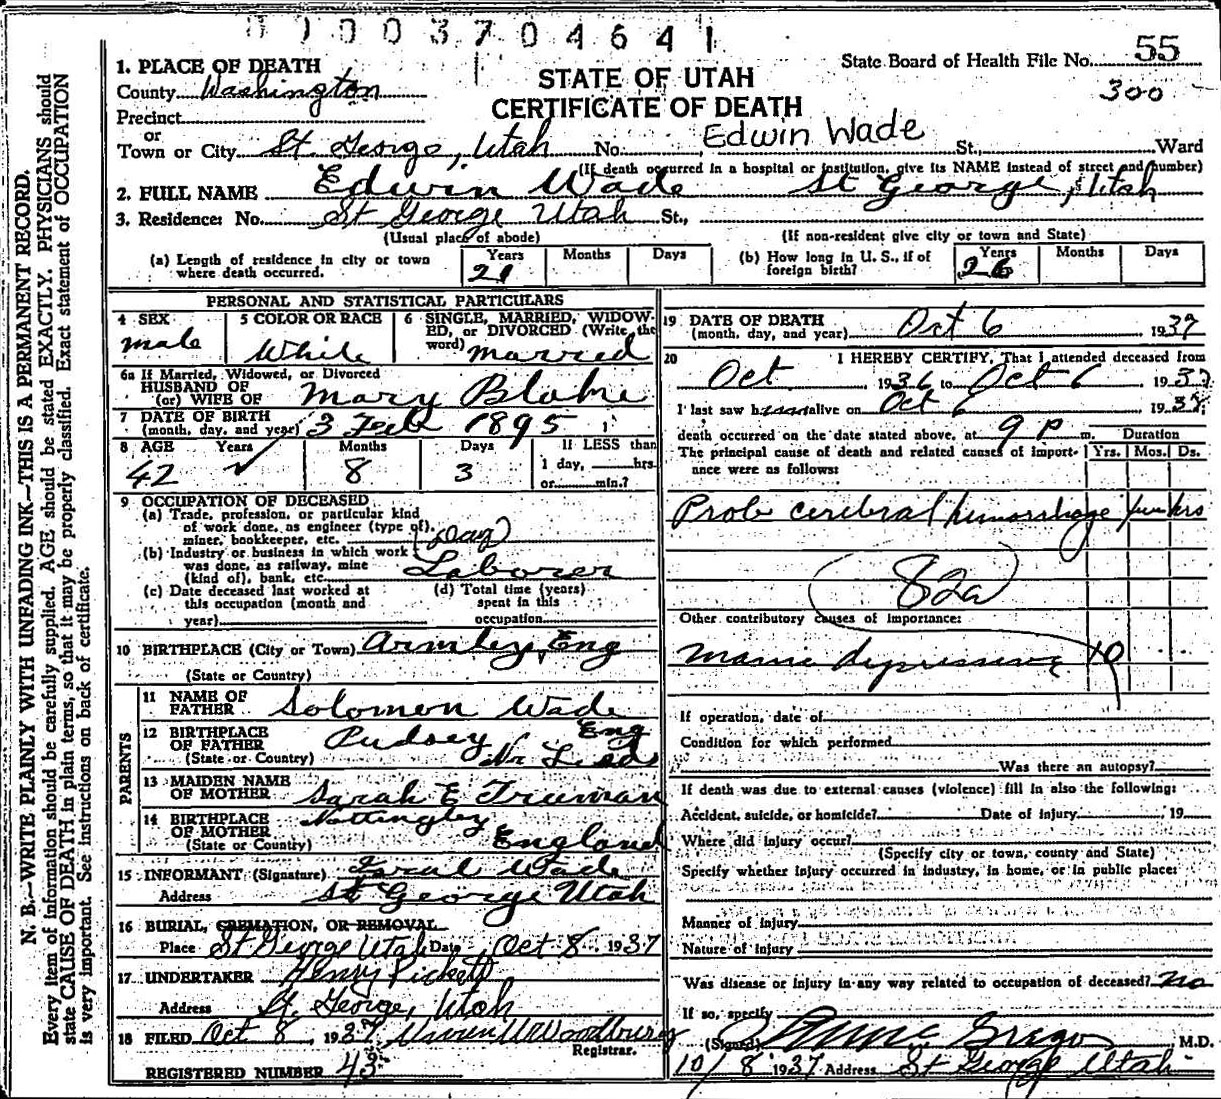 01003704641
State Board of Health File No. 55
300
STATE OF UTAH
CERTIFICATE OF DEATH
1. PLACE OF DEATH
County Washington
Precinct
or
Town or City St. George, Utah No. Edwin Wade St., Ward
(If death occurred in a hospital or institution, give its NAME instead of street and number)
2. FULL NAME Edwin Wade St George, Utah
3. Residence: No. St George Utah St.,
(Usual place of abode) (If non-resident give city or town and State)
(a) Length of residence in city or town where death occurred. Years 21 Months Days
(b) How long in U. S., if of foreign birth? Years 26 Months Days
PERSONAL AND STATISTICAL PARTICULARS
4 SEX male
5 COLOR OR RACE White
6 SINGLE, MARRIED, WIDOWED, or DIVORCED (Write the word) married
6a If Married, Widowed, or Divorced
HUSBAND OF
(or) WIFE OF Mary Blake
7 DATE OF BIRTH
(month, day, and year) 3 Feb 1895
8 AGE Years Months Days If LESS than
42 8 3 1 day, hrs.
or min.?
9 OCCUPATION OF DECEASED
(a) Trade, profession, or particular kind
of work done, as engineer (type of),
miner, bookkeeper, etc. Day
(b) Industry or business in which work
was done, as railway, mine
(kind of), bank, etc. Laborer
(c) Date deceased last worked at
this occupation (month and
year)
(d) Total time (years)
spent in this
occupation
10 BIRTHPLACE (City or Town) Armley, Eng
(State or Country)
PARENTS
11 NAME OF
FATHER Solomon Wade
12 BIRTHPLACE
OF FATHER Pudsey Eng
(State or Country) Nr. Leeds
13 MAIDEN NAME
OF MOTHER Sarah E Truman
14 BIRTHPLACE
OF MOTHER Nottingley
(State or Country) England
15 INFORMANT (Signature) Wade
Address St George Utah
16 BURIAL, CREMATION, OR REMOVAL
Place St George Utah Date Oct 8 1937
17 UNDERTAKER Henry Pickett
Address St. George, Utah
18 FILED Oct 8, 1937 Warren W Woodbury
Registrar.
REGISTERED NUMBER 43
19 DATE OF DEATH
(month, day, and year) Oct 6 1937
20 I HEREBY CERTIFY, That I attended deceased from
Oct 1936 to Oct 6 1937
I last saw him alive on Oct 6 1937
death occurred on the date stated above, at 9 P m. Duration
The principal cause of death and related causes of importance were as follows: Yrs. Mos. Ds.
Prob cerebral hemorrhage few hrs
82a
Other contributory causes of importance:
Manic depressive
If operation, date of
Condition for which performed
Was there an autopsy?
If death was due to external causes (violence) fill in also the following:
Accident, suicide, or homicide? Date of injury , 19
Where did injury occur?
(Specify city or town, county and State)
Specify whether injury occurred in industry, in home, or in public place:
Manner of injury
Nature of injury
Was disease or injury in any way related to occupation of deceased? no
If so, specify
(Signed) M.D.
10/8 1937 Address St George Utah
N. B.—WRITE PLAINLY WITH UNFADING INK—THIS IS A PERMANENT RECORD.
Every item of information should be carefully supplied. AGE should be stated EXACTLY. PHYSICIANS should
state CAUSE OF DEATH in plain terms, so that it may be properly classified. Exact statement of OCCUPATION
is very important. See instructions on back of certificate.